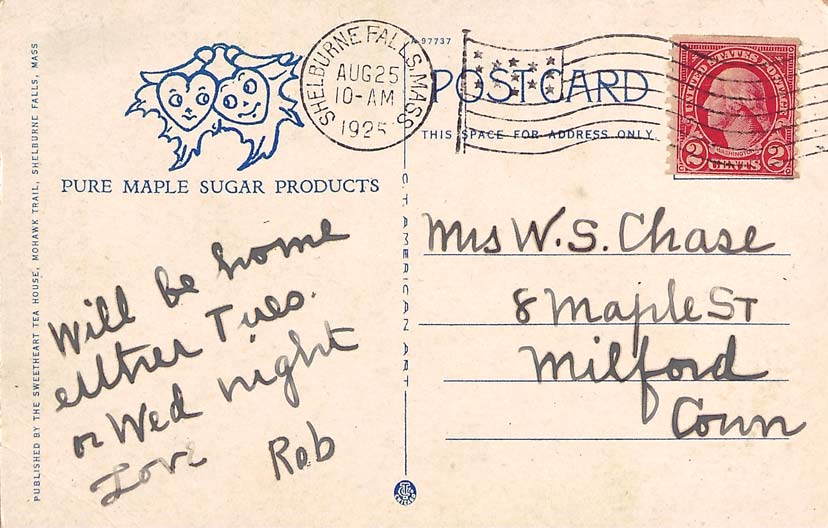 PUBLISHED BY THE SWEETHEART TEA HOUSE, MOHAWK TRAIL, SHELBURNE FALLS, MASS
PURE MAPLE SUGAR PRODUCTS
Will be home
either Tues.
or Wed night
Love Rob
C.T. AMERICAN ART
SHELBURNE FALLS, MASS
AUG 25
10-AM
1925
A-97737
POST CARD
THIS SPACE FOR ADDRESS ONLY
UNITED STATES POSTAGE
WASHINGTON
2 CENTS 2
Mrs W. S. Chase
8 Maple ST
Milford
Conn